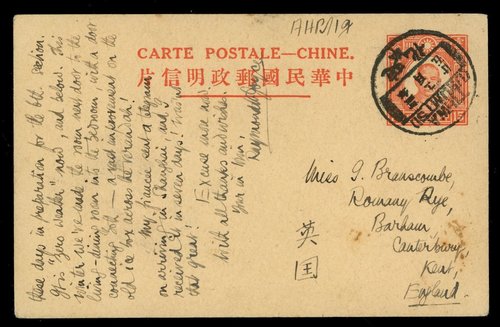 AHB/19
CARTE POSTALE—CHINE.
中華民國郵政明信片
these days in preparation for the 6th. section.
It is "zero weather" now, and below. This
winter we've made the room next door to the
living-dining room into the bedroom with a door
connecting both — a vast improvement on the
old ice box across the verandah!
My fiancée sent a telegram
on arriving in Shanghai and I
received it in seven days! Wasn't
that great!
Excuse more now,
With all thanks and wishes
Yours in Him,
Raymond Joyce
Miss G. Branscombe,
Romany Rye,
Barham,
Canterbury,
Kent,
England.
英国